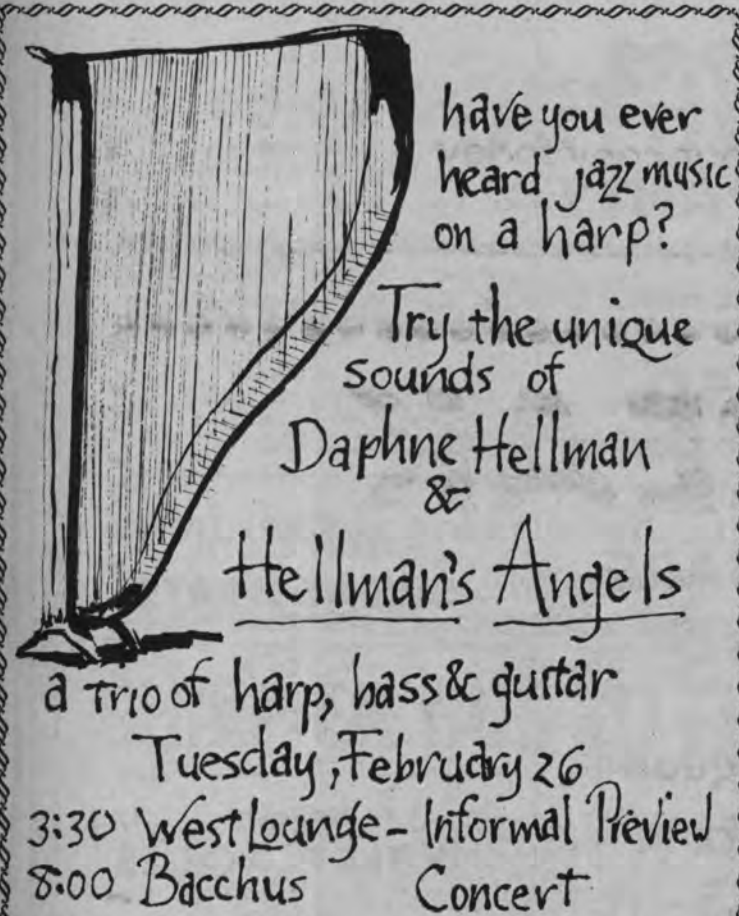 have you ever
heard jazz music
on a harp?
Try the unique
sounds of
Daphne Hellman
&
Hellman's Angels
a trio of harp, bass & guitar
Tuesday, February 26
3:30 West Lounge - Informal Preview
8:00 Bacchus Concert